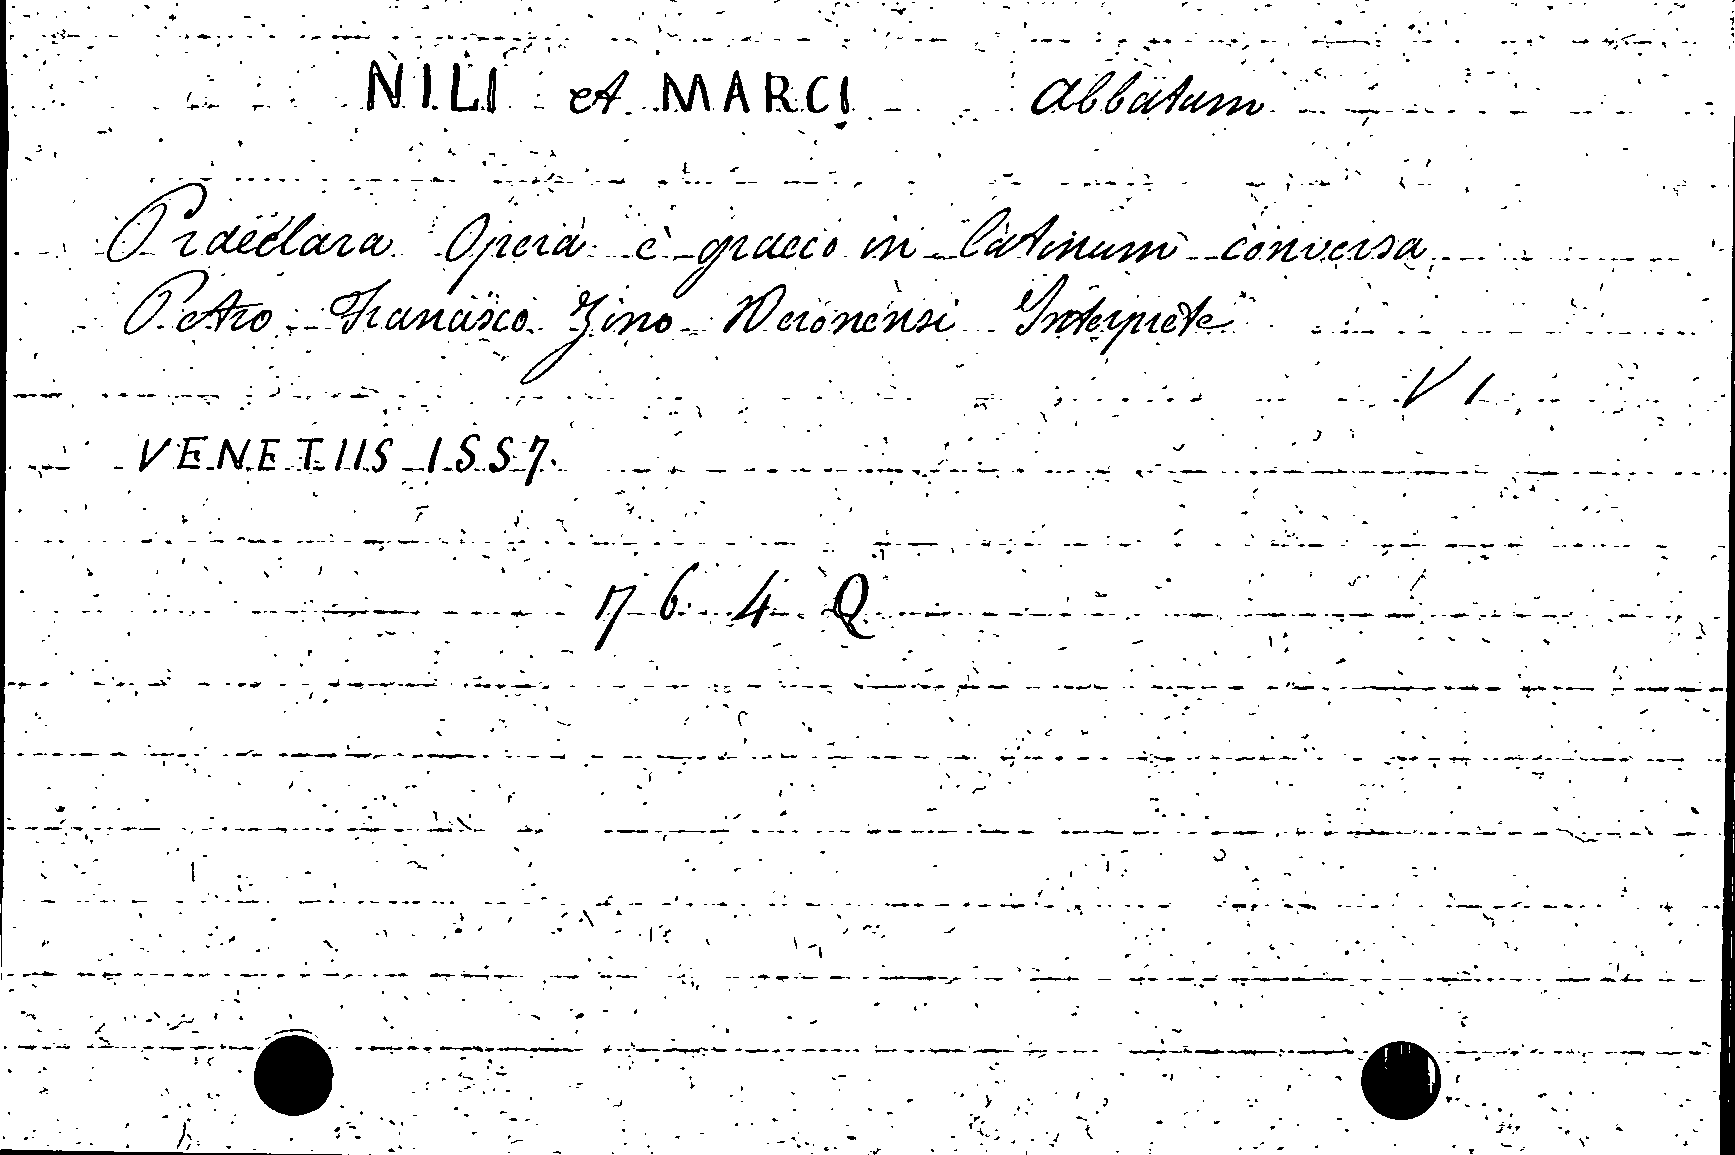 NILI et MARCI Abbatum
Praeclara Opera è graeco in latinum conversa
Petro Francisco Zino Veronensi Interprete
V 1
VENETIIS 1557.
7 6 4 Q